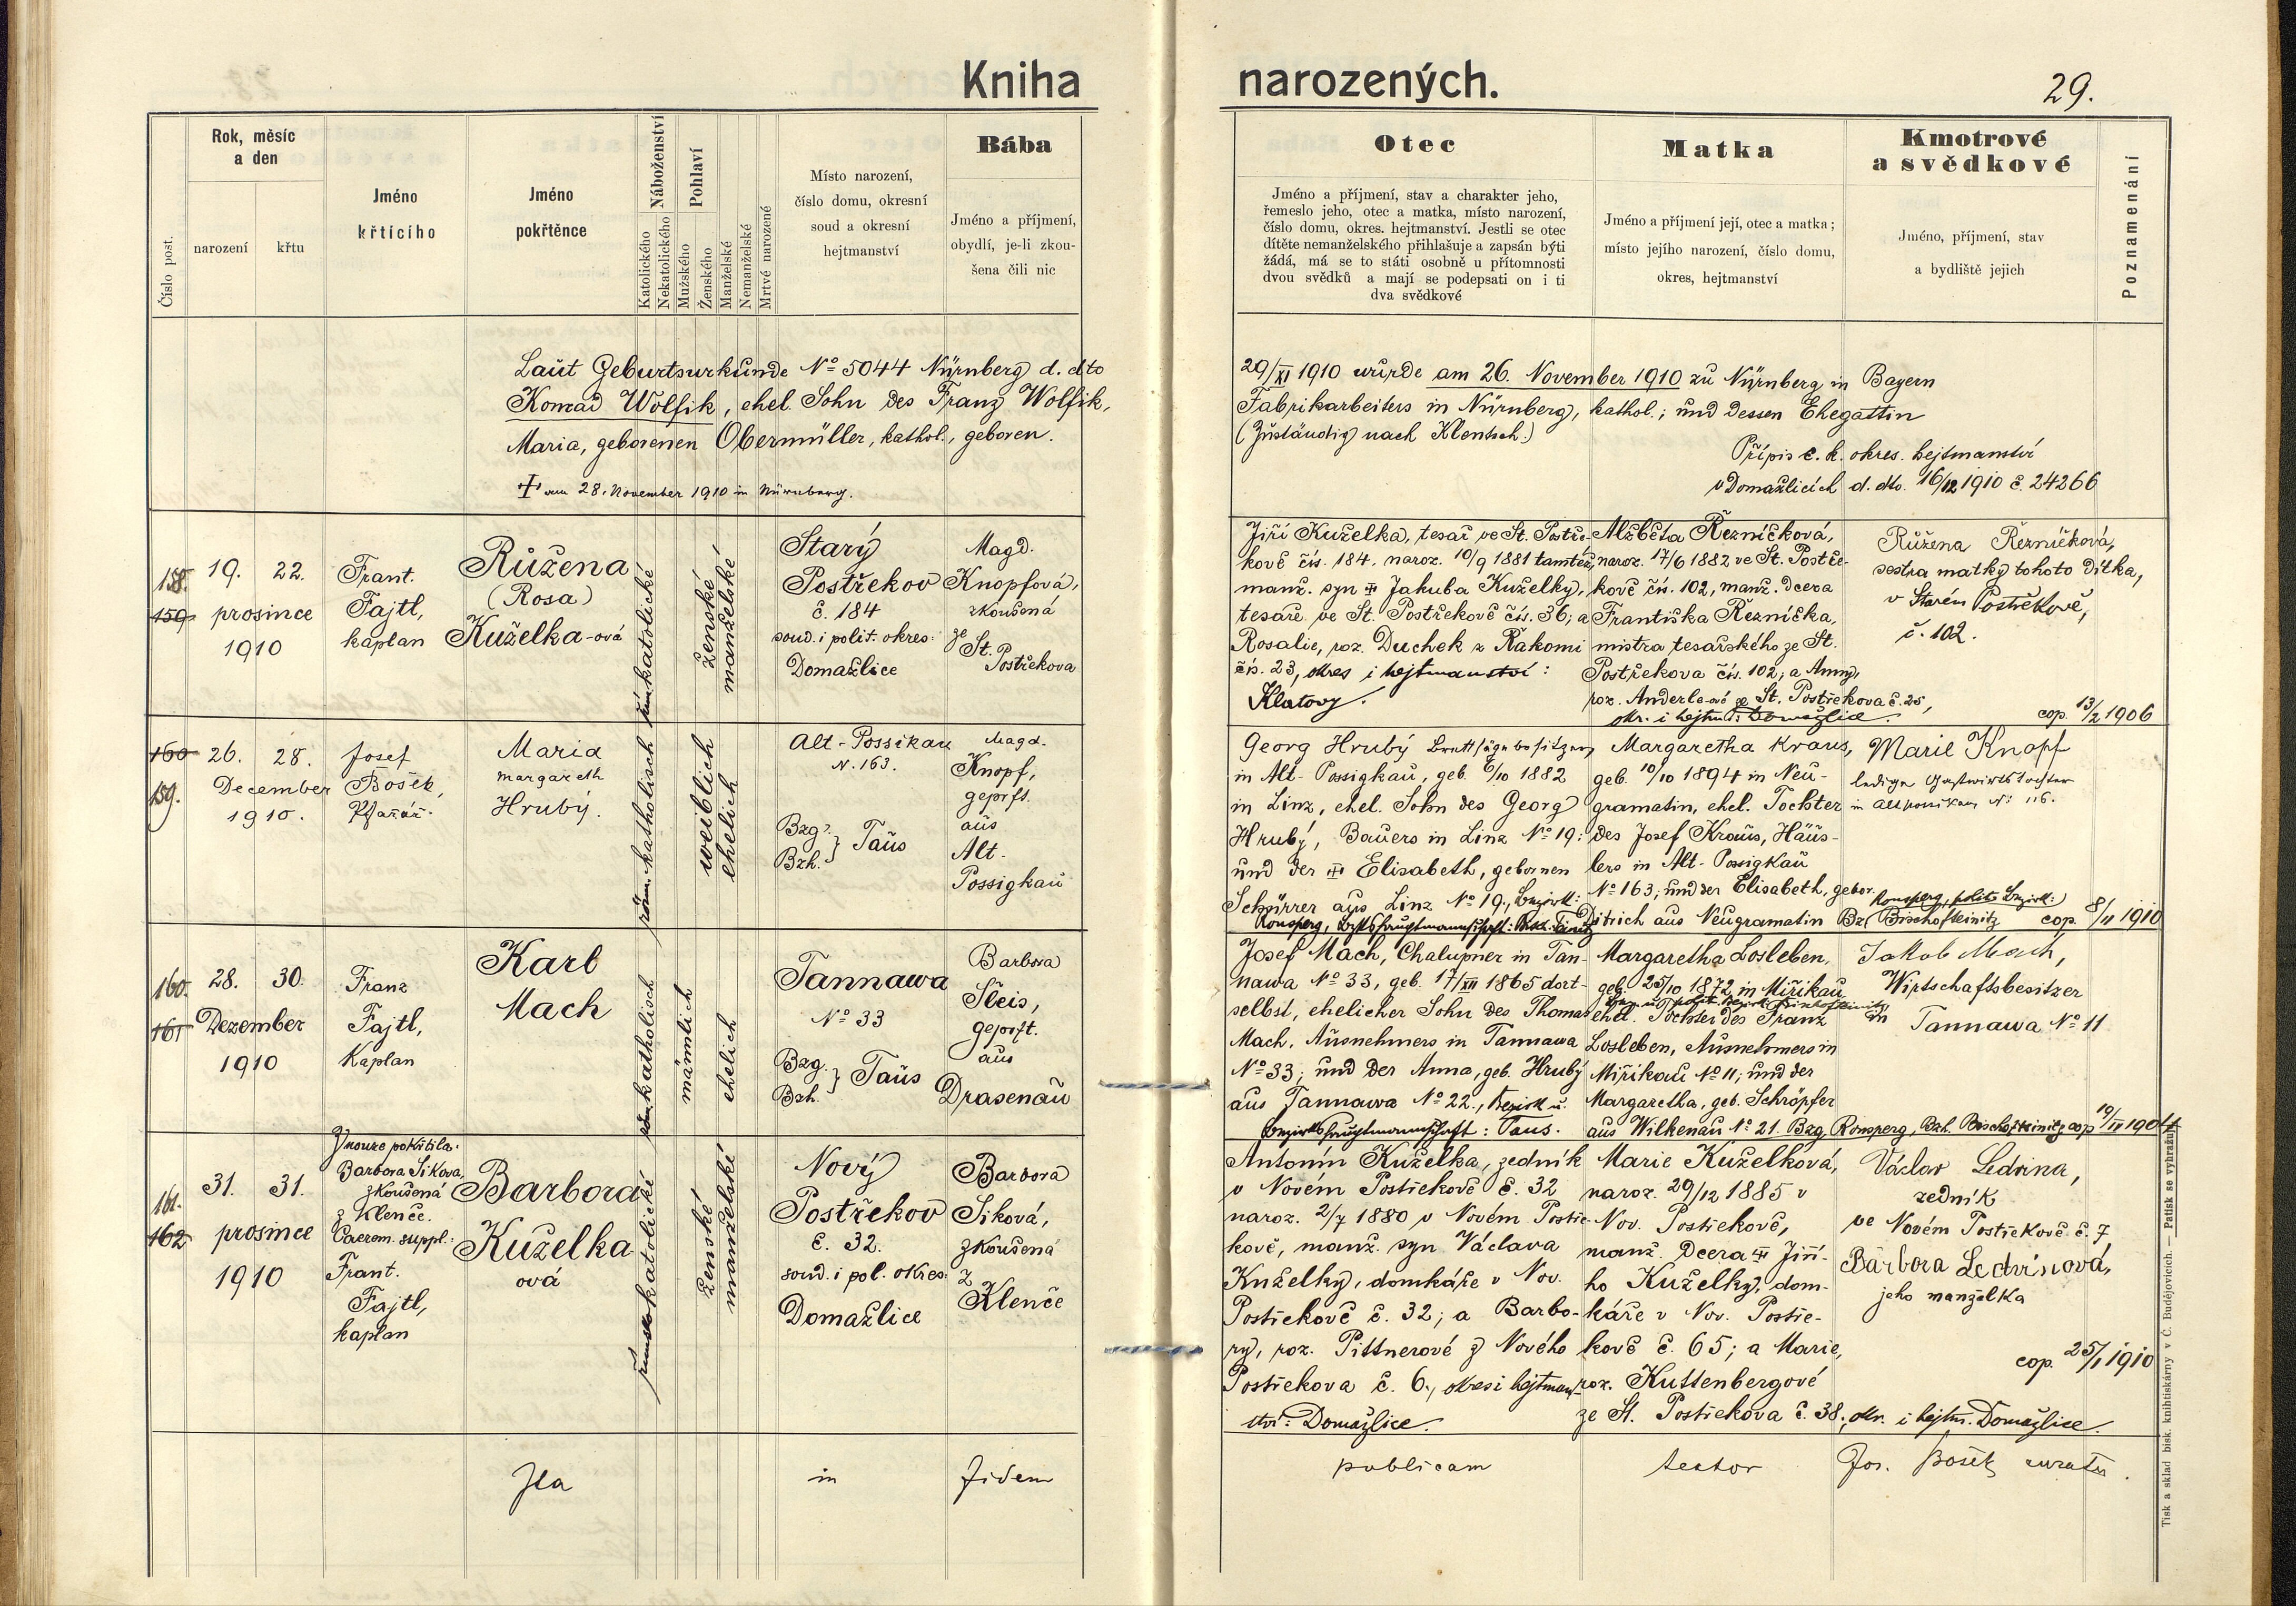 Kniha narozených.
29.
Číslo post.
Rok, měsíc
a den
narození
křtu
Jméno
křtícího
Jméno
pokřtěnce
Náboženství
Katolického
Nekatolického
Pohlaví
Mužského
Ženského
Manželské
Nemanželské
Mrtvé narozené
Místo narození,
číslo domu, okresní
soud a okresní
hejtmanství
Bába
Jméno a příjmení,
obydlí, je-li zkou-
šena čili nic
Otec
Jméno a příjmení, stav a charakter jeho,
řemeslo jeho, otec a matka, místo narození,
číslo domu, okres. hejtmanství. Jestli se otec
dítěte nemanželského přihlašuje a zapsán býti
žádá, má se to státi osobně u přítomnosti
dvou svědků a mají se podepsati on i ti
dva svědkové
Matka
Jméno a příjmení její, otec a matka;
místo jejího narození, číslo domu,
okres, hejtmanství
Kmotrové
a svědkové
Jméno, příjmení, stav
a bydliště jejich
Poznamenání
Laut Geburtsurkunde No 5044 Nürnberg d. dto 29/XI 1910 wurde am 26. November 1910 zu Nürnberg in Bayern
Konrad Wolfik, ehel. Sohn des Franz Wolfik, Fabrikarbeiters in Nürnberg, kathol.; und dessen Ehegattin
Maria, geborenen Obermüller, kathol., geboren. (Zuständig nach Klentsch.)
Přípis c. k. okres. hejtmanství
+ am 28. November 1910 in Nürnberg.
v Domažlicích d. dto. 16/12 1910 č. 24266
158.
159
19. 22.
prosince
1910
Frant.
Fajtl,
kaplan
Růžena
(Rosa)
Kuželka-ová
řím. katolické
ženské
manželské
Starý
Postřekov
č. 184
soud. i polit. okres:
Domažlice
Magd.
Knopfová,
zkoušená
ze
St.
Postřekova
Jiří Kuželka, tesař ve St. Postře-
kově čís. 184, naroz. 10/9 1881 tamtéž,
manž. syn † Jakuba Kuželky,
tesaře ve St. Postřekově čís. 36; a
Rosalie, roz. Duchek z Rakomi
čís. 23, okres i hejtmanství:
Klatovy.
Alžběta Řezníčková,
naroz. 17/6 1882 ve St. Postře-
kově čís. 102, manž. dcera
Františka Řezníčka,
mistra tesařského ze St.
Postřekova čís. 102, a Anny,
roz. Anderle-ové ze St. Postřekova č. 25,
okr. i hejtm.: Domažlice.
Růžena Řezníčková,
sestra matky tohoto dítka,
v Starém Postřekově,
č. 102.
cop. 13/2 1906
160
159.
26. 28.
December
1910.
Josef
Bošek,
Pfarrer.
Maria
Margareth
Hrubý.
röm. katholisch
weiblich
ehelich
Alt-Possikau
N. 163.
Bzg.
Bzh. } Taus
Magd.
Knopf,
geprft.
aus
Alt-
Possigkau
Georg Hrubý Brettsägebesitzer
in Alt-Possigkau, geb. 6/10 1882
in Linz, ehel. Sohn des Georg
Hrubý, Bauers in Linz No 19;
und der † Elisabeth, gebornen
Schürrer aus Linz No 19., Bezirk:
Ronsperg, Bezirkshauptmannschaft:
Margaretha Kraus,
geb. 10/10 1894 in Neu-
gramatin, ehel. Tochter
des Josef Kraus, Häus-
lers in Alt-Possigkau
No 163; und der Elisabeth, gebor.
Ditrich aus Neugramatin Bz.
Ronsperg, polit. Bezirk:
Bischofteinitz
Marie Knopf
ledige Gastwirthstochter
in Altpossikau N: 116.
cop. 8/11 1910
160.
161
28. 30.
Dezember
1910
Franz
Fajtl,
Kaplan
Karl
Mach
röm. katholisch
männlich
ehelich
Tannawa
No 33
Bzg.
Bzh. } Taus
Barbora
Sleis,
geprft.
aus
Drasenau
Josef Mach, Chalupner in Tan-
nawa No 33, geb. 17/XII 1865 dort-
selbst, ehelicher Sohn des Thomas
Mach, Ausnehmers in Tannawa
No 33; und der Anna, geb. Hrubý
aus Tannawa No 22., Bezirk u.
Bezirkshauptmannschaft: Taus.
Margaretha Losleben,
geb. 25/10 1872 in Miřikau
ehel. Tochter des Franz
Losleben, Ausnehmers in
Miřikau No 11; und der
Margaretha, geb. Schröpfer
aus Wilkenau No 21. Bzg. Ronsperg, Bzh. Bischofteinitz
Jakob Mach,
Wirtschaftsbesitzer
in Tannawa No 11
cop 19/IV 1904
161.
162
31. 31.
prosince
1910
Z nouze pokřtila:
Barbora Siková,
zkoušená
z Klenče.
Caerem. suppl.:
Frant.
Fajtl,
kaplan
Barbora
Kuželka
ová
římsko katolické
ženské
manželské
Nový
Postřekov
č. 32.
soud. i pol. okres:
Domažlice
Barbora
Siková,
zkoušená
z
Klenče
Antonín Kuželka, zedník
v Novém Postřekově č. 32
naroz. 2/7 1880 v Novém Postře-
kově, manž. syn Václava
Kuželky, domkáře v Nov.
Postřekově č. 32; a Barbo-
ry, roz. Pittnerové z Nového
Postřekova č. 6., okres i hejtman-
ství: Domažlice.
Marie Kuželková,
naroz. 29/12 1885 v
Nov. Postřekově,
manž. dcera † Jiří-
ho Kuželky, dom-
káře v Nov. Postře-
kově č. 65; a Marie,
roz. Kuttenbergové
ze St. Postřekova č. 38., okr. i hejtm. Domažlice.
Václav Ledvina,
zedník
ve Novém Postřekově č. 7
Barbora Ledvinová,
jeho manželka
cop. 25/I 1910
Ita in fidem publicam testor Jos. Bošek curatus.
Tisk a sklad bisk. knihtiskárny v Č. Budějovicích. — Patisk se vyhražuje.